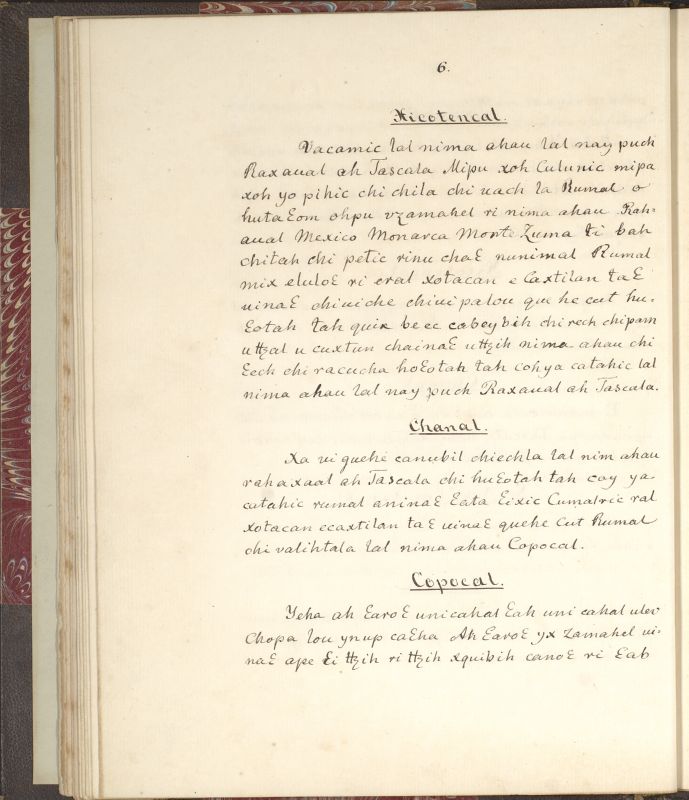 6.
Xicotencal.
Vacamic lal nima ahau lal nay puch
Raxaual ah Tascala Mipu xoh Culunic mipa
xoh yo pihic chi chila chi uach la Rumal o
huta Ɛom ohpu vzamahel ri nima ahau Rah=
aual Mexico Monarca Monte Zuma ti bah
chitah chi petic rinu chaƐ nunimal Rumal
mix eluloƐ ri eral xotacan e Caxtilan taƐ
uinaƐ chiuiche chiuipalou que he cut hu-
Ɛotah tah quix be ec cabeybih chi rech chipam
utzal u cuxtun chainaƐ utzih nima ahau chi
Ɛech chi racucha hoƐotah tah cohya catahic lal
nima ahau lal nay puch Raxaual ah Tascala.
Chanal.
Xa ui quehe canubil chiechla lal nim ahau
rahaxaal ah Tascala chi huƐotah tah cay ya
catahic rumal aninaƐ Ɛata Ɛixic Cumalric ral
xotacan ecaxtilan taƐ uinaƐ quehe cut Rumal
chi valihtala lal nima ahau Copocal.
Copocal.
Yeha ah ƐaroƐ unicahal Ɛah uni cahal ulev
Chopa lou ynup caƐha Ah ƐaroƐ yx Zamahel ui-
naƐ ape Ɛi tzih ri tzih xquibih canoƐ ri Ɛab